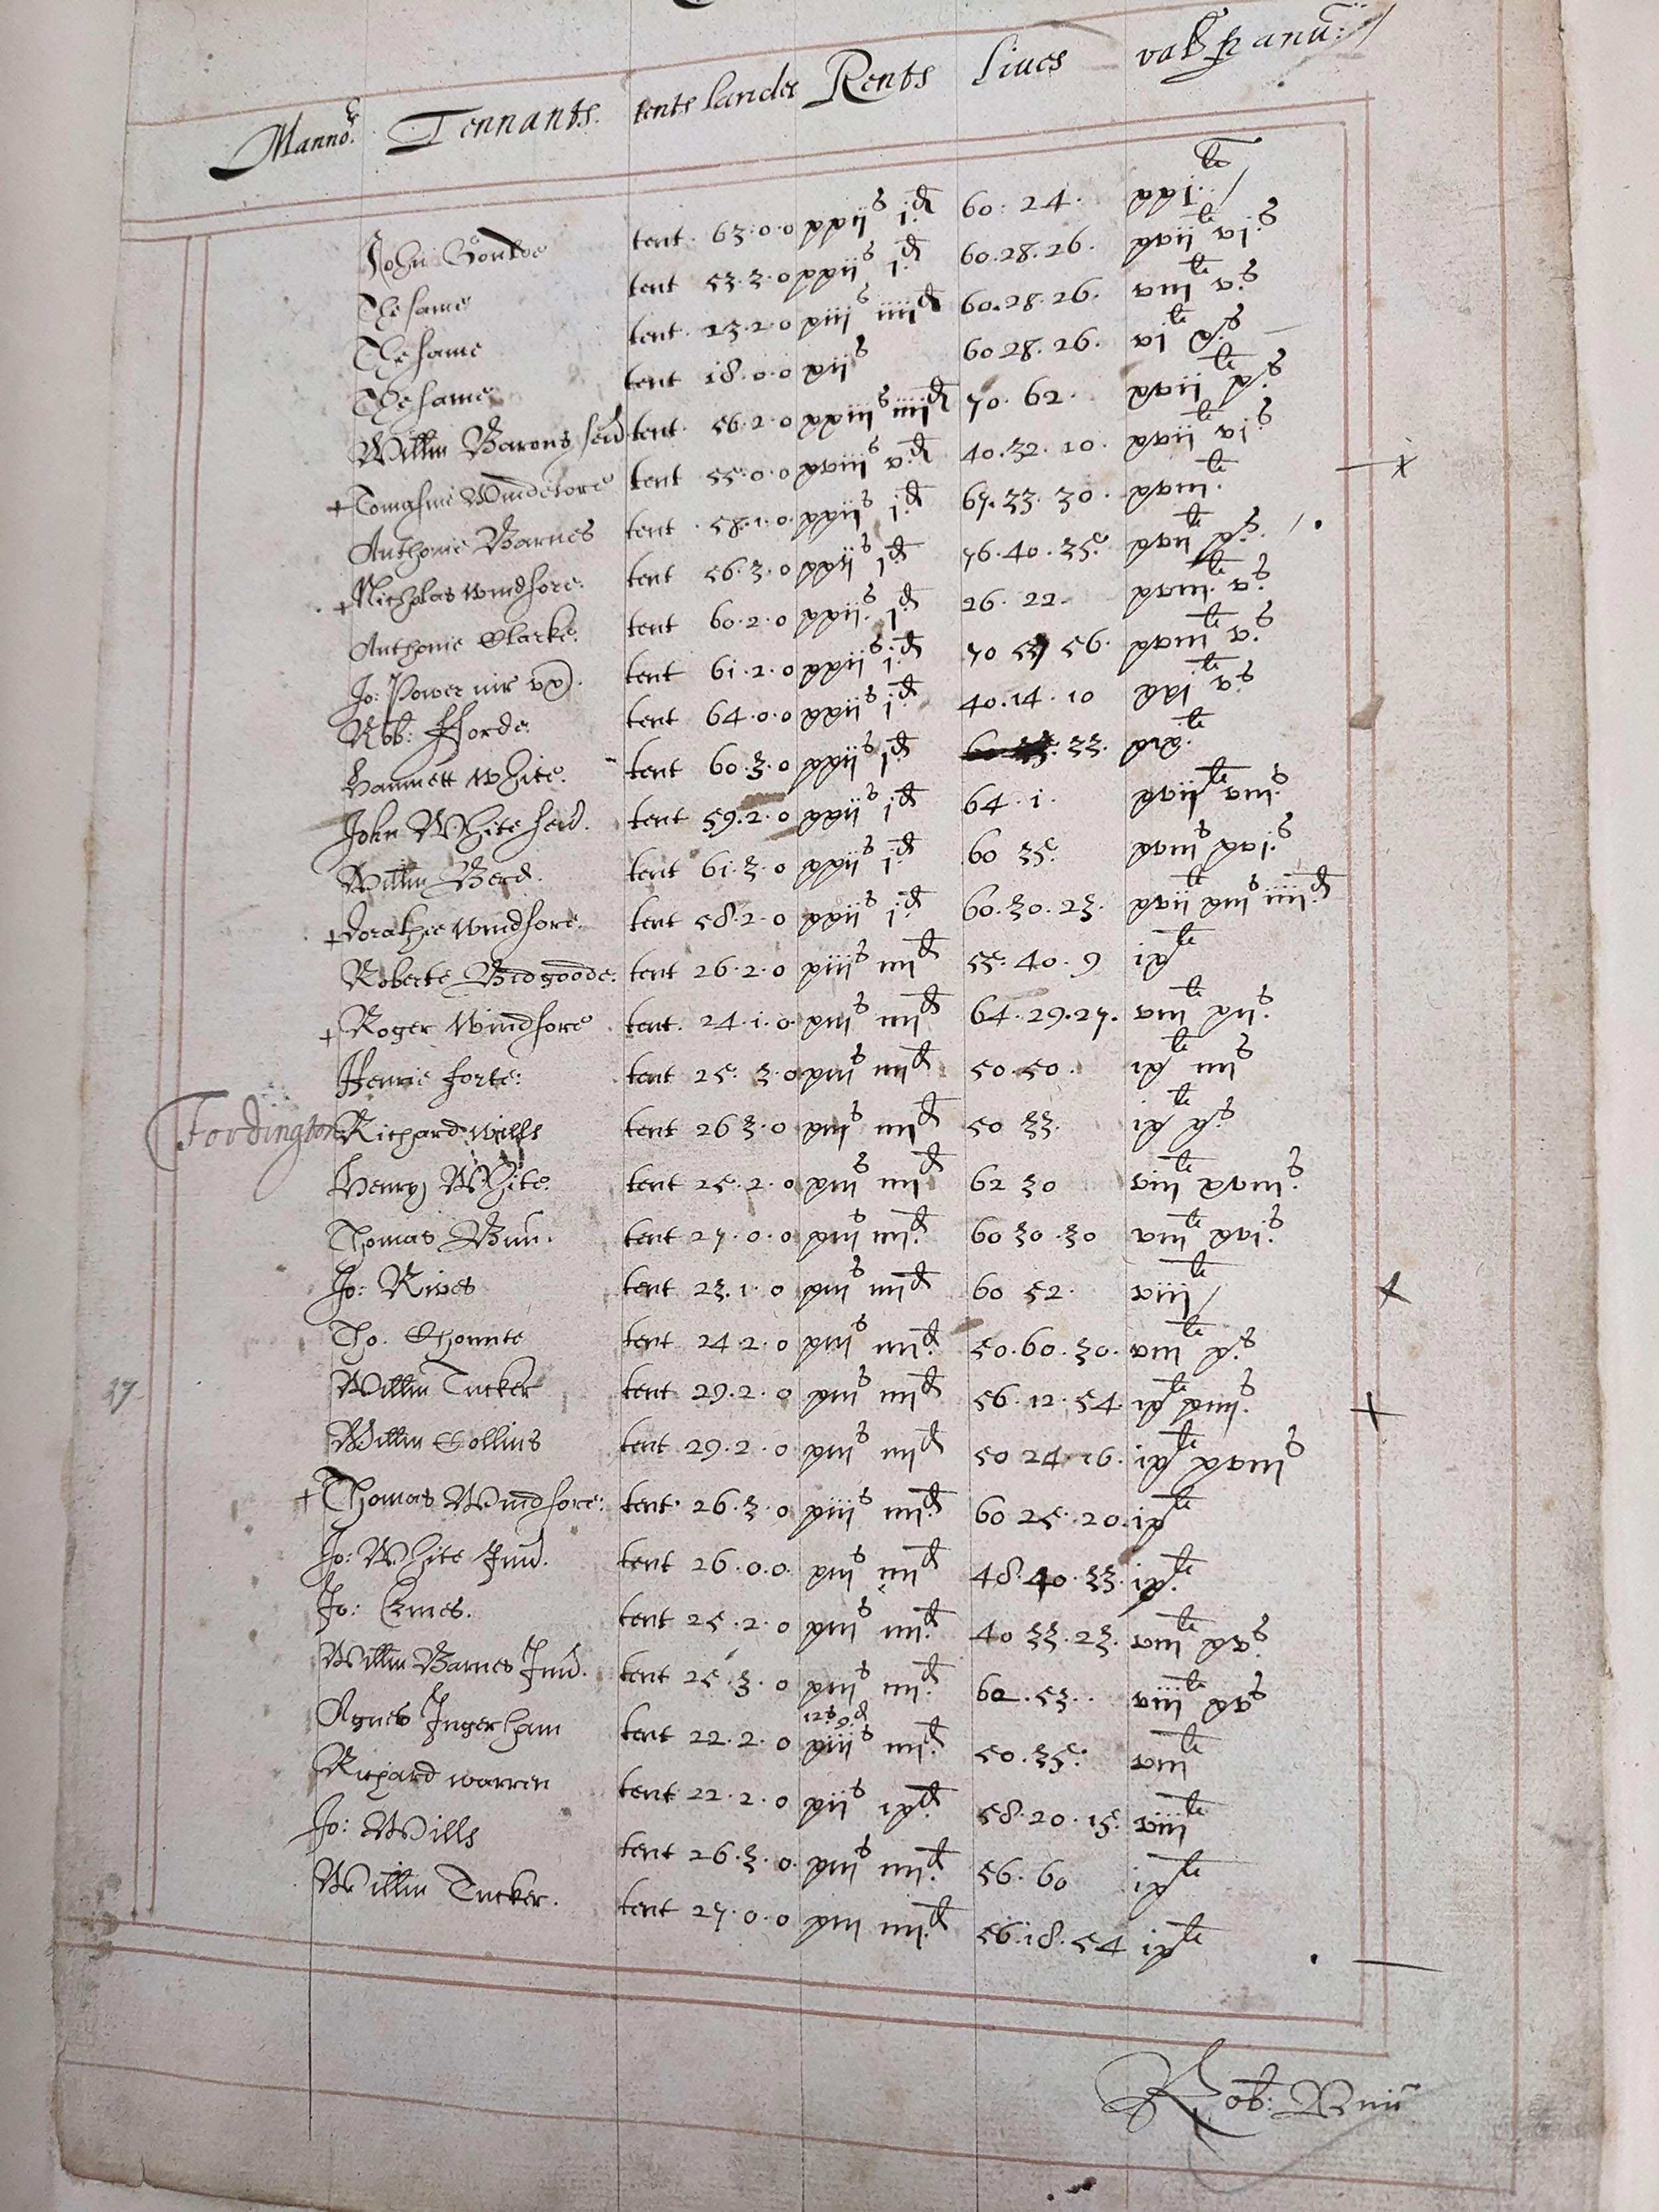 Manno^r. Tennants. tents landes Rents Liues val p anū:
John Goulde tent. 63.0.0 xxii^s i^d 60. 24. xxi^li
The same tent 53.3.0 xxii^s i^d 60.28.26. xvii^li vi^s
The same tent. 23.2.0 xiii^s iiii^d 60.28.26. viii^li v^s
The same tent 18.0.0 xii^s 60 28. 26. vi^li x^s
Willm Barons sen^d tent. 56.2.0 xxiii^s iiii^d 70. 62. xvii^li x^s
+ Tomasine Windesore tent 55.0.0 xviii^s v^d 40.32.10. xvii^li vi^s
Anthonie Barnes tent. 58.1.0. xxii^s i^d 67.33.30. xviii^li
+ Nicholas Windsore: tent 56.3.0 xxii^s i^d 76.40.35. xvii^li x^s
Anthonie Clarke: tent 60.2.0 xxii^s i^d 26. 22. xviii^li v^s
Jo: Power iur ux. tent 61.2.0 xxii^s i^d 70 56. xviii^li v^s
Rob: fforde: tent 64.0.0 xxii^s i^d 40.14.10 xxi^li v^s
Hamnett White. tent 60.3.0 xxii^s i^d 33. xix^li
John White sen^d. tent 59.2.0 xxii^s i^d 64. 1. xvii^li viii^s
Willm Berd. tent 61.3.0 xxii^s i^d 60 35. xviii^s xvi^s
+ Dorathie Windsore. tent 58.2.0 xxii^s i^d 60.30.23. xvii^li xiii^s iiii^d
Roberte Bidgoode. tent 26.2.0 xiii^s iiii^d 55.40.9 ix^li
+ Roger Windsore tent. 24.1.0. xiii^s iiii^d 64.29.27. viii^li xii^s
Henrie forte: tent 25.3.0 xiii^s iiii^d 50.50. ix^li iiii^s
Fordington Richard Wills tent 26 3.0 xiii^s iiii^d 50 33. ix^li x^s
Henry White. tent 25.2.0 xiii^s iiii^d 62 30 viii^li xviii^s
Thomas Bun. tent 27.0.0 xiii^s iiii^d 60 30.30 viii^li xvi^s
Jo: Rives tent 23.1.0 xiii^s iiii^d 60 52. viii^li
Tho. Chounte tent 24.2.0 xiii^s iiii^d 50.60.30. viii^li x^s
37 Willm Tucker tent 29.2.0 xiii^s iiii^d 56.12.54. ix^li xiiii^s
Willm Collins tent 29.2.0 xiii^s iiii^d 50 24.16. ix^li xviii^s
+ Thomas Windsore: tent 26.3.0 xiii^s iiii^d 60 25.20. ix^li
Jo: White Jun^d. tent 26.0.0. xiii^s iiii^d 48.40.33. ix^li
Jo: Emes. tent 25.2.0 xiii^s iiii^d 40 33.23. viii^li xv^s
Willm Barnes Jun^d. tent 25.3.0 xiii^s iiii^d 60.53. viii^li xv^s
12^s 9^d
Agnes Ingerham tent 22.2.0 xiii^s iiii^d 50.35. viii^li
Richard warren tent 22.2.0 xii^s ix^d 58.20.15. viii^li
Jo: Wills tent 26.3.0. xiii^s iiii^d 56.60 ix^li
Willm Tucker. tent 27.0.0 xiii iiii^d 56.18.54 ix^li
Rob: